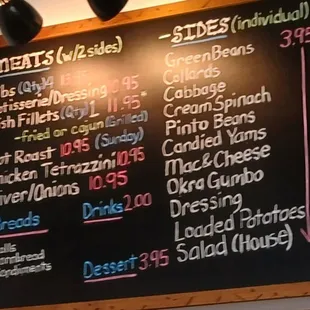 MEATS (w/2 sides)
(Qty)
/Dressing 10.95
Fillets (Qty) 11.95
-Fried or cajun (Grilled)
Roast 10.95 (Sunday)
Tetrazzini 10.95
/Onions 10.95
Breads
Drinks 2.00
Dessert 3.95
-SIDES (individual)
3.95
Green Beans
Collards
Cabbage
Cream Spinach
Pinto Beans
Candied Yams
Mac & Cheese
Okra Gumbo
Dressing
Loaded Potatoes
Salad (House)